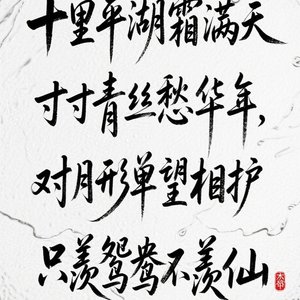 十里平湖霜满天
寸寸青丝愁华年，
对月形单望相护
只羡鸳鸯不羡仙